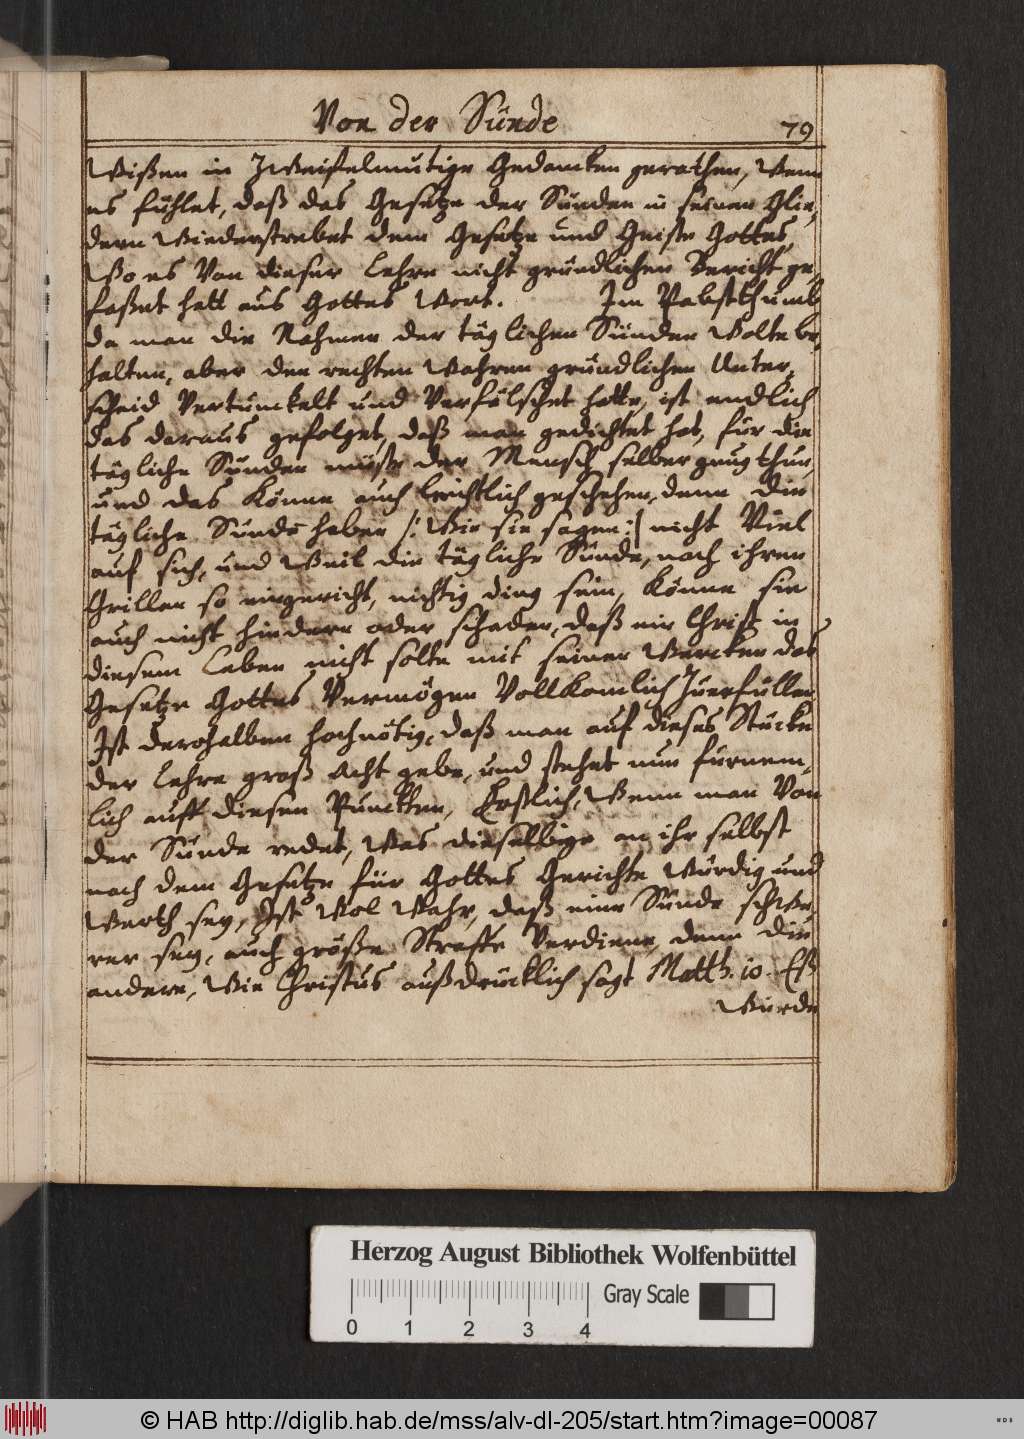 Von der Sünde
79
Wißen in Zweifelmutige Gedancken gerathen, Wenn
es fühlet, daß das Gesetze der Sünden in seinen Glie,
dern Wiederstrebet dem Gesetze und Geiste Gottes,
Wo es Von dieser Lehre nicht gründlichen Bericht ge,
faßet hett aus Gottes Wort. Im Pabstthumb
da man die Nahmen der täglichen Sünden Wolte be,
halten, aber den rechten Wahren gründlichen Unter,
scheid Vertunckelt und Verfälschet hette, ist endlich
das daraus gefolget, daß man gedichtet hat, für die
tägliche Sünden müße der Mensch selber gnug thun,
und das Könne auch leichtlich geschehen, denn die
tägliche Sünde haben /: Wie sie sagen :/ nicht Viel
auf sich, und Weil die tägliche Sünde, nach ihren
Grillen so eingericht, nichtig ding sein, Könne sie
auch nicht hindern oder schaden, daß ein Christ in
diesem Leben nicht solte mit seinen Wercken das
Gesetze Gottes Vermögen Vollkomlich Zuerfüllen
Ist derohalben hochnötig, daß man auf dieses Stücke
der Lehre groß Acht gebe, und stehet nun fürnem,
lich auff diesen Punckten, Erstlich, Wenn man Von
der Sünde redet, Was dieselbige an ihr selbst
nach dem Gesetze für Gottes Gerichte Würdig und
Werth sey, Ist Wol Wahr, daß eine Sünde schwe,
rer sey, auch größe Straffe Verdiene, denn die
andere, Wie Christus außdrücklich sagt Matth. 10. Eß
Würde
Herzog August Bibliothek Wolfenbüttel
Gray Scale
0 1 2 3 4
© HAB http://diglib.hab.de/mss/alv-dl-205/start.htm?image=00087